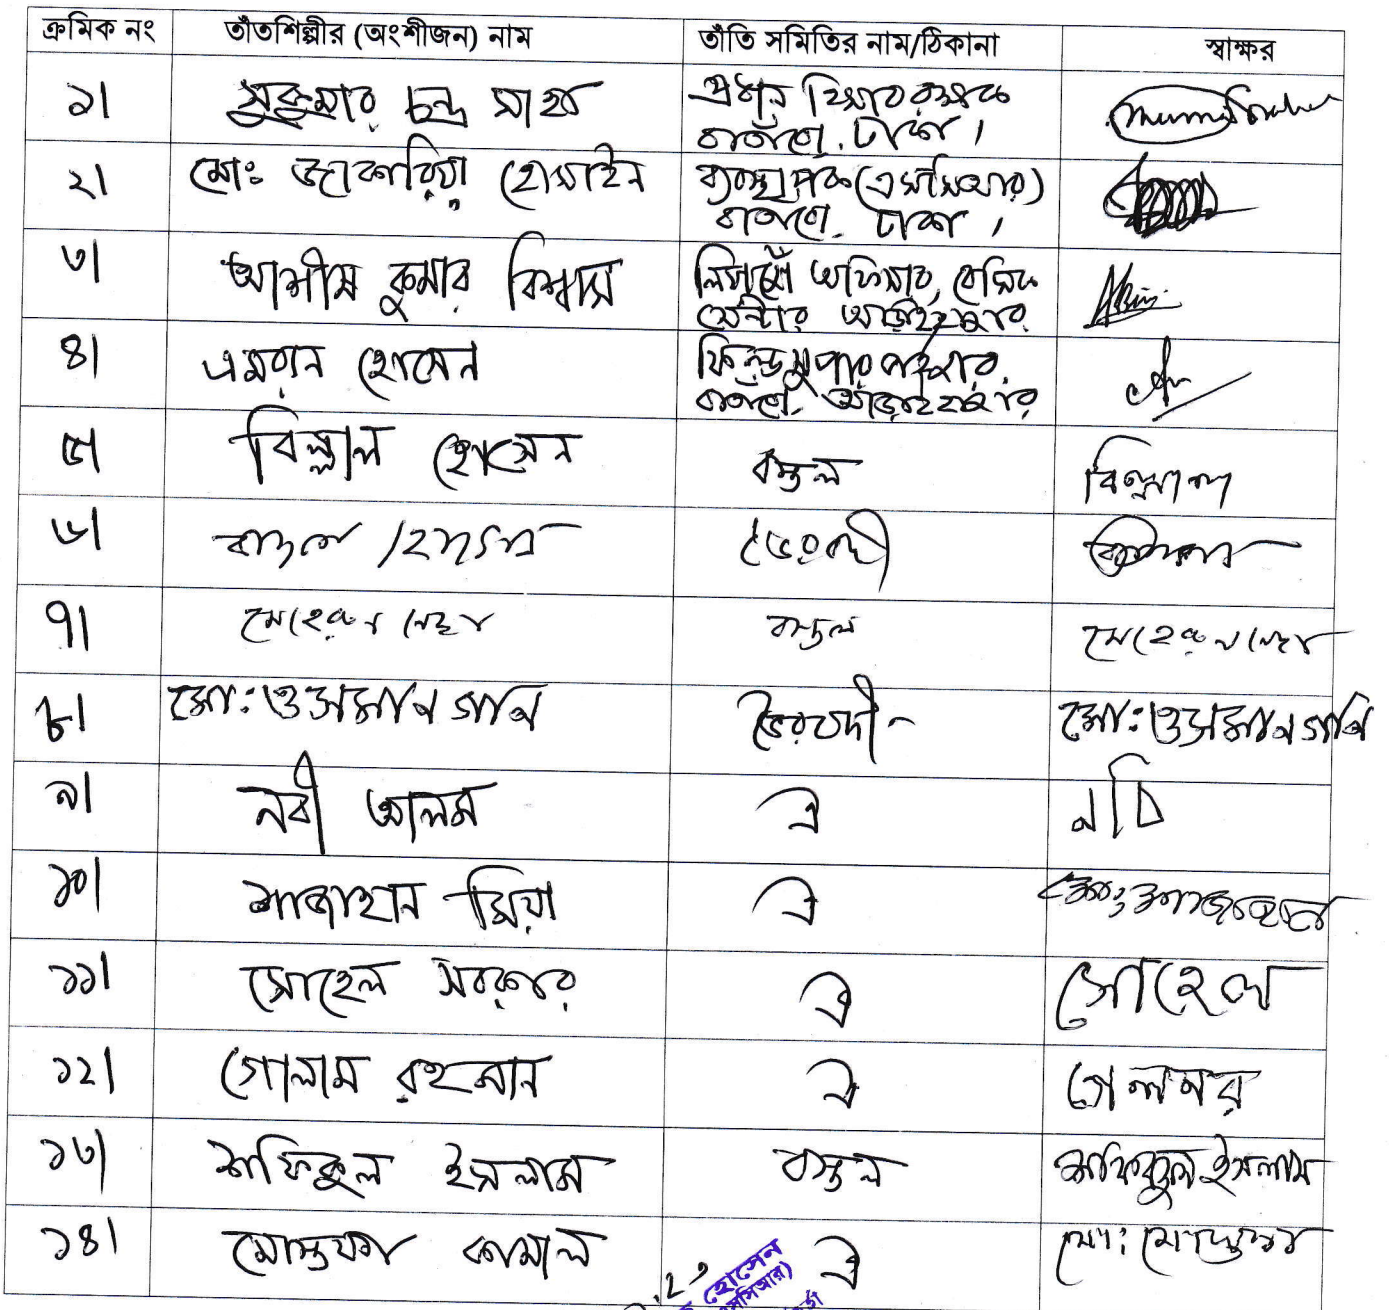 ক্রমিক নং তাঁতশিল্পীর (অংশীজন) নাম তাঁতি সমিতির নাম/ঠিকানা স্বাক্ষর
১। সুকুমার চন্দ্র সাহা প্রধান হিসাবরক্ষক
বাতাঁবো, ঢাকা।
২। মোঃ জাকারিয়া হোসাইন ব্যবস্থাপক (এসসিআর)
বাতাঁবো, ঢাকা।
৩। আশীষ কুমার বিশ্বাস লিয়াজোঁ অফিসার, বেসিক
সেন্টার আড়াইহাজার
৪। এমরান হোসেন ফিল্ড সুপারভাইজার,
বাতাঁবো, আড়াইহাজার
৫। বিল্লাল হোসেন বস্তল বিল্লাল
৬।
৭। মেহেরুন নেছা বস্তল মেহেরুন নেছা
৮। মো: ওসমান গানি ভৈরবদী মো: ওসমান গানি
৯। নবী আলম ঐ নবি
১০। শাজাহান মিয়া ঐ
১১। সোহেল সরকার ঐ সোহেল
১২। গোলাম রহমান ঐ
১৩। শফিকুল ইসলাম বস্তল শফিকুল ইসলাম
১৪। মোস্তফা কামাল ঐ
হোসেন